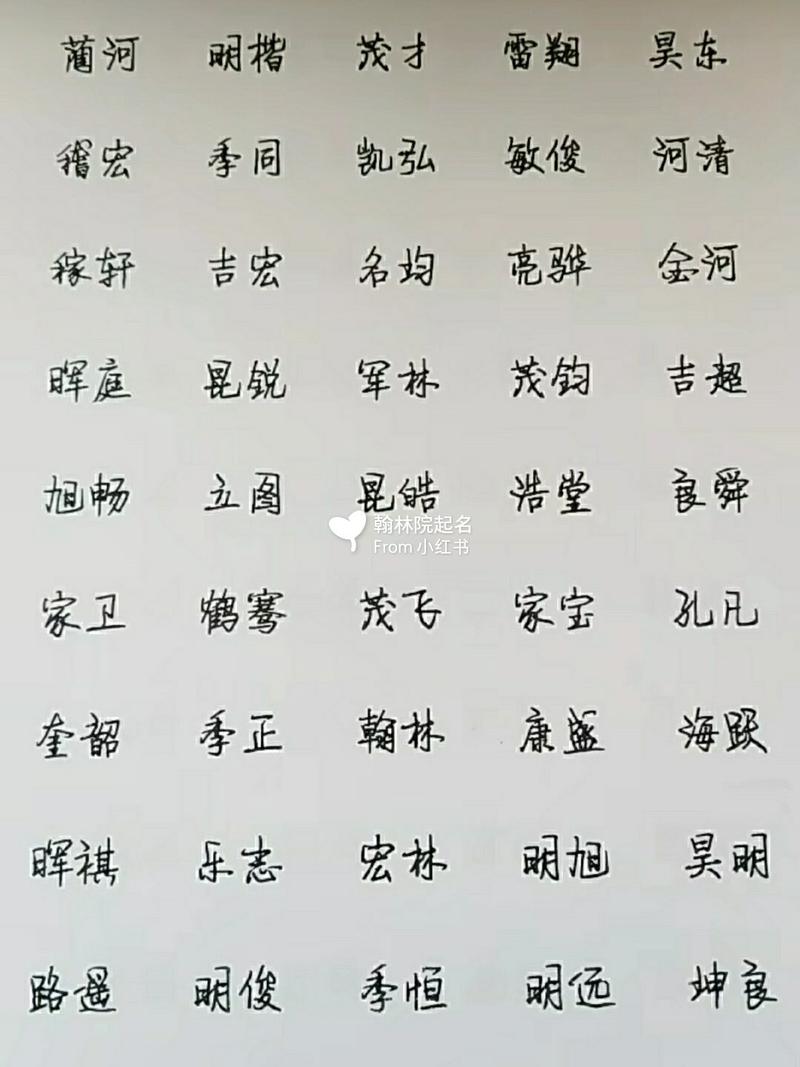 蔺河 明楷 茂才 雷翔 昊东
稽宏 季同 凯弘 敏俊 河清
稼轩 吉宏 名均 亮骅 金河
晖庭 昆锐 军林 茂钧 吉超
旭畅 立图 昆皓 浩堂 良舜
翰林院起名
From 小红书
家卫 鹤骞 茂飞 家宝 孔凡
奎韶 季正 翰林 康盛 海跃
晖祺 乐志 宏林 明旭 昊明
路遥 明俊 季恒 明远 坤良